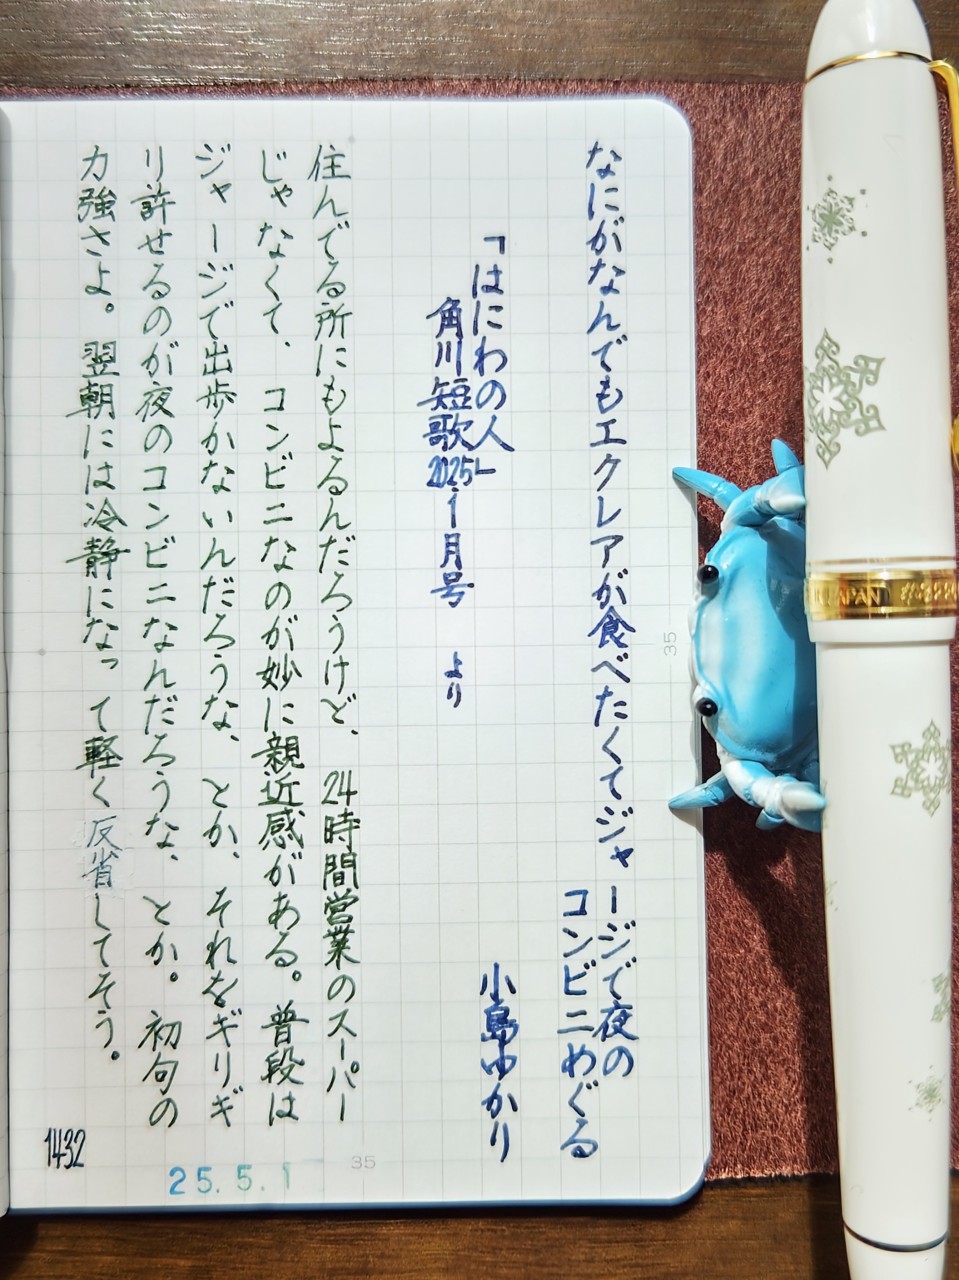 なにがなんでもエクレアが食べたくてジャージで夜の
コンビニめぐる
小島ゆかり
「はにわの人」
角川短歌2025.1月号 より
住んでる所にもよるんだろうけど、24時間営業のスーパー
じゃなくて、コンビニなのが妙に親近感がある。普段は
ジャージで出歩かないんだろうな、とか、それをギリギ
リ許せるのが夜のコンビニなんだろうな、とか。初句の
力強さよ。翌朝には冷静になって軽く反省してそう。
1432
25.5.1
35
35
JAPAN